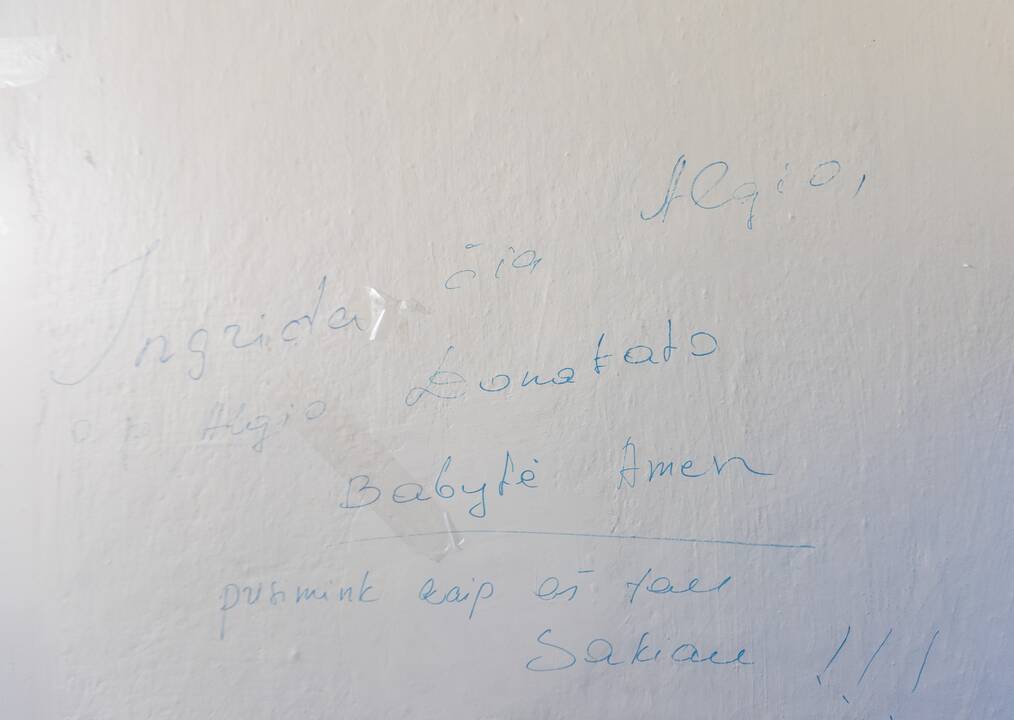 Ingrida čia Algio,
o p Algio Donatato
Babytė Amen
prisimink kaip aš tau
Sakiau !!!